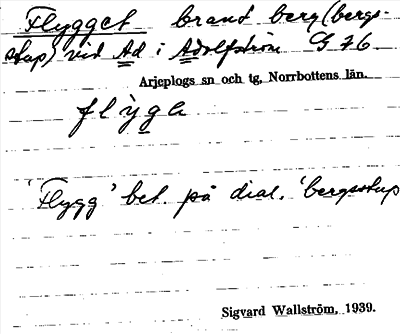 Flygget brant berg (bergs-
stup) vid Ad i Adolfström G 76
Arjeplogs sn och tg, Norrbottens län.
flỳga
'Flygg' bet. på dial. 'bergsstup
Sigvard Wallström, 1939.